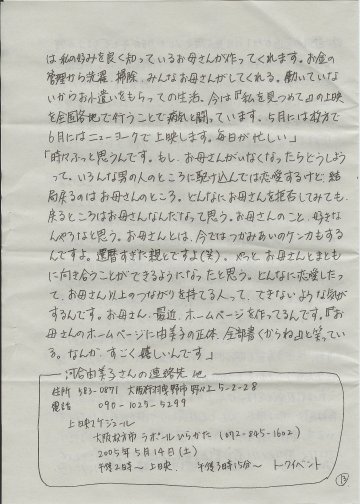 は私の好みを良く知っているお母さんが作ってくれます。お金の
管理から洗濯、掃除、みんなお母さんがしてくれる。働いていな
いからお小遣いをもらっての生活。今は『私を見つめて』の上映
を全国各地で行うことで病気と闘っています。5月には枚方で
6月にはニューヨークで上映します。毎日が忙しい」
「時々ふっと思うんです。もし、お母さんがいなくなったらどうしよう
って。いろんな男の人のところに駆け込んでは恋愛するけど、結
局戻るのはお母さんのところ。どんなにお母さんを拒否してみても、
戻るところはお母さんなんだなって思う。お母さんのこと、好きな
んやろなと思う。お母さんとは、今ではつかみあいのケンカもする
んですよ。還暦すぎた親とですよ(笑)。やっと、お母さんとまとも
に向き合うことができるようになったと思う。どんなに恋愛したっ
て、お母さん以上のつながりを持てる人って、できないような気が
するんです。お母さん、最近、ホームページを作ってるんです。『お
母さんのホームページに由美子の正体、全部書くからね』と笑ってい
る。なんか、すごく嬉しいんです」
河合由美子さんの連絡先 他
住所 583-0871 大阪府羽曳野市野々上5-2-28
電話 090-1025-5299
上映スケジュール
大阪枚方市 ラポールひらかた (072-845-1602)
2005年5月14日(土)
午後2時〜 上映、 午後3時15分〜 トークイベント
13